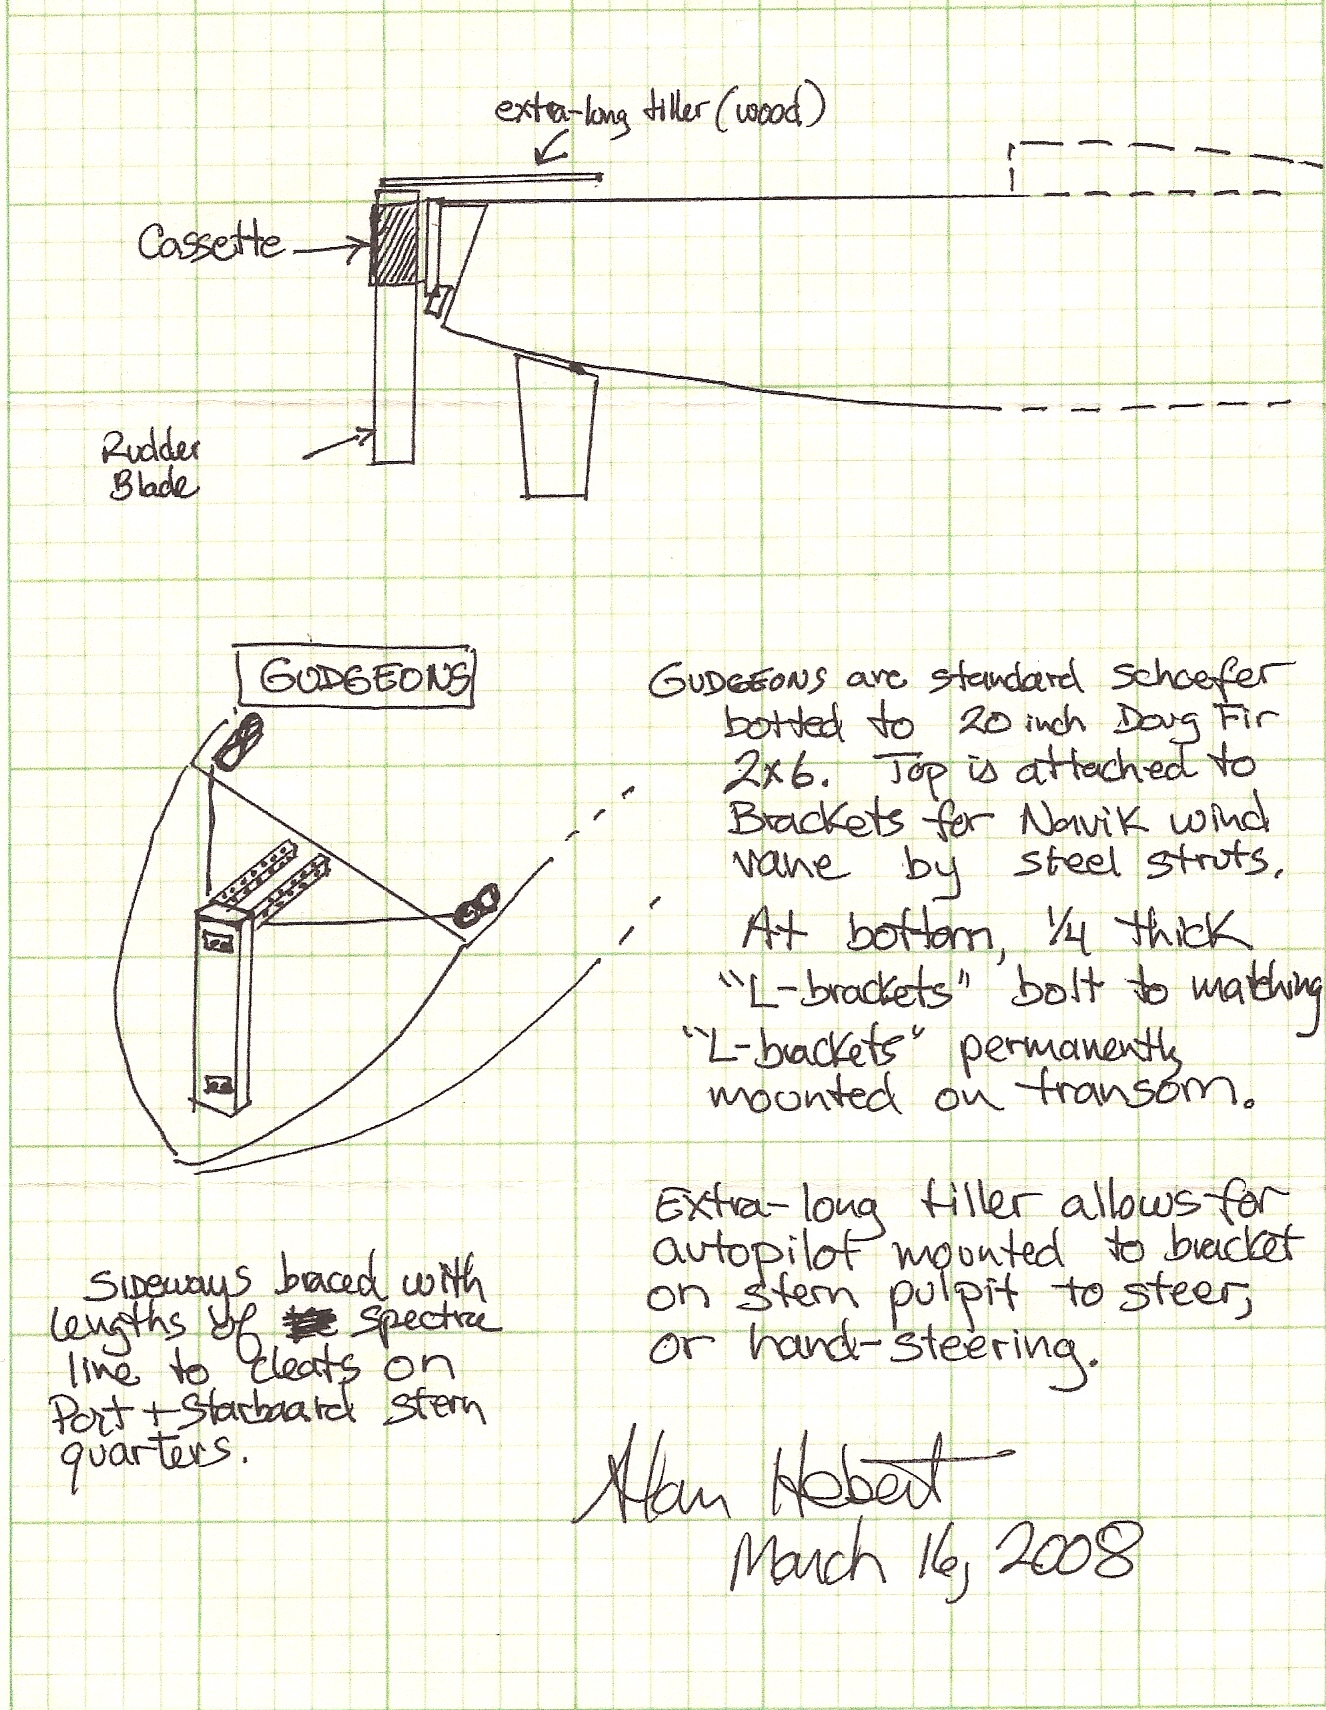 extra-long tiller (wood)
Cassette
Rudder
Blade
GUDGEONS
GUDGEONS are standard Schaefer
bolted to 20 inch Doug Fir
2x6. Top is attached to
Brackets for Navik wind
vane by steel struts.
At bottom, 1/4 thick
"L-brackets" bolt to matching
"L-brackets" permanently
mounted on transom.
Extra-long tiller allows for
autopilot mounted to bracket
on stern pulpit to steer,
or hand-steering.
SIDEWAYS braced with
lengths of spectra
line to cleats on
Port + Starboard stern
quarters.
Alan Hebert
March 16, 2008